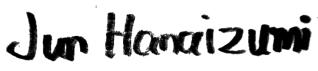 Jun Hanaizumi